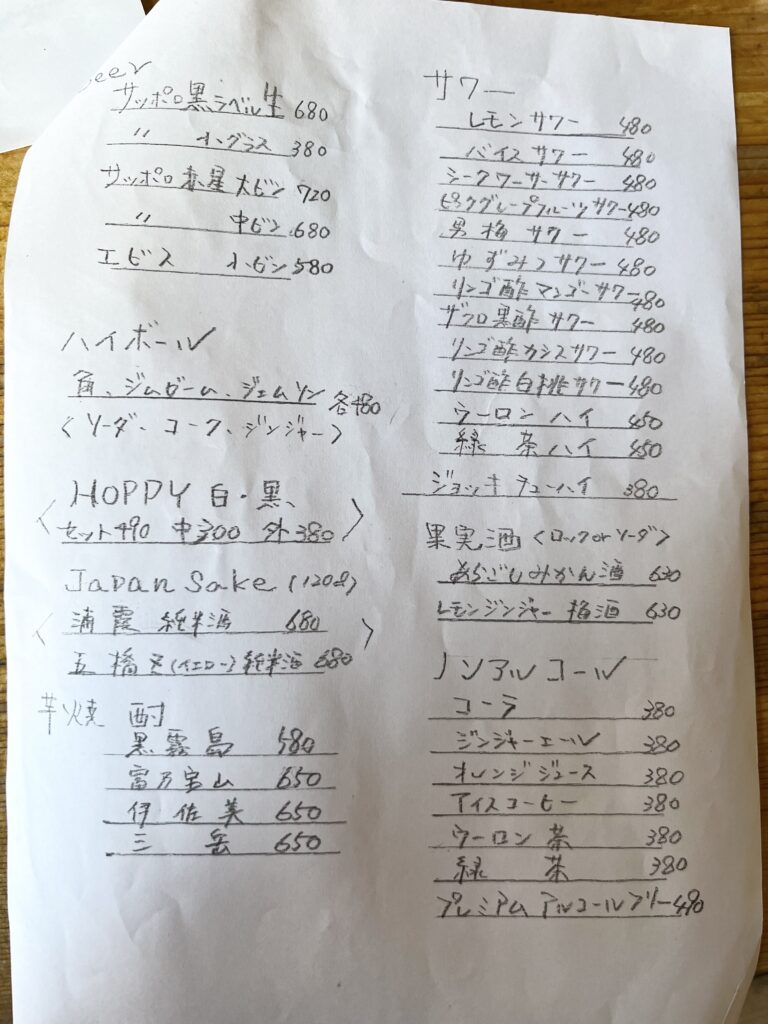 Beer
サッポロ黒ラベル生 680
〃 小グラス 380
サッポロ赤星大ビン 720
〃 中ビン 680
エビス 小ビン 580
ハイボール
角、ジムビーム、ジェムソン 各480
〈ソーダ、コーク、ジンジャー〉
HOPPY 白・黒
〈セット490 中300 外380〉
Japan Sake (120㎖)
〈浦霞 純米酒 680
五橋 (イエロー) 純米酒 680〉
芋焼酎
黒霧島 580
富乃宝山 650
伊佐美 650
三岳 650
サワー
レモンサワー 480
バイスサワー 480
シークワーサーサワー 480
ピンクグレープフルーツサワー480
男梅サワー 480
ゆずみつサワー 480
リンゴ酢マンゴーサワー480
ザクロ黒酢サワー 480
リンゴ酢カシスサワー 480
リンゴ酢白桃サワー480
ウーロンハイ 450
緑茶ハイ 450
ジョッキチューハイ 380
果実酒〈ロックorソーダ〉
あらごしみかん酒 630
レモンジンジャー梅酒 630
ノンアルコール
コーラ 380
ジンジャーエール 380
オレンジジュース 380
アイスコーヒー 380
ウーロン茶 380
緑茶 380
プレミアムアルコールフリー490